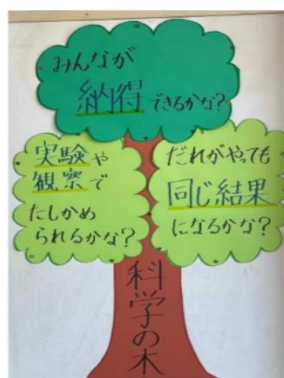 みんなが
納得できるかな?
実験や
観察で
たしかめ
られるかな?
だれがやっても
同じ結果
になるかな?
科学の木